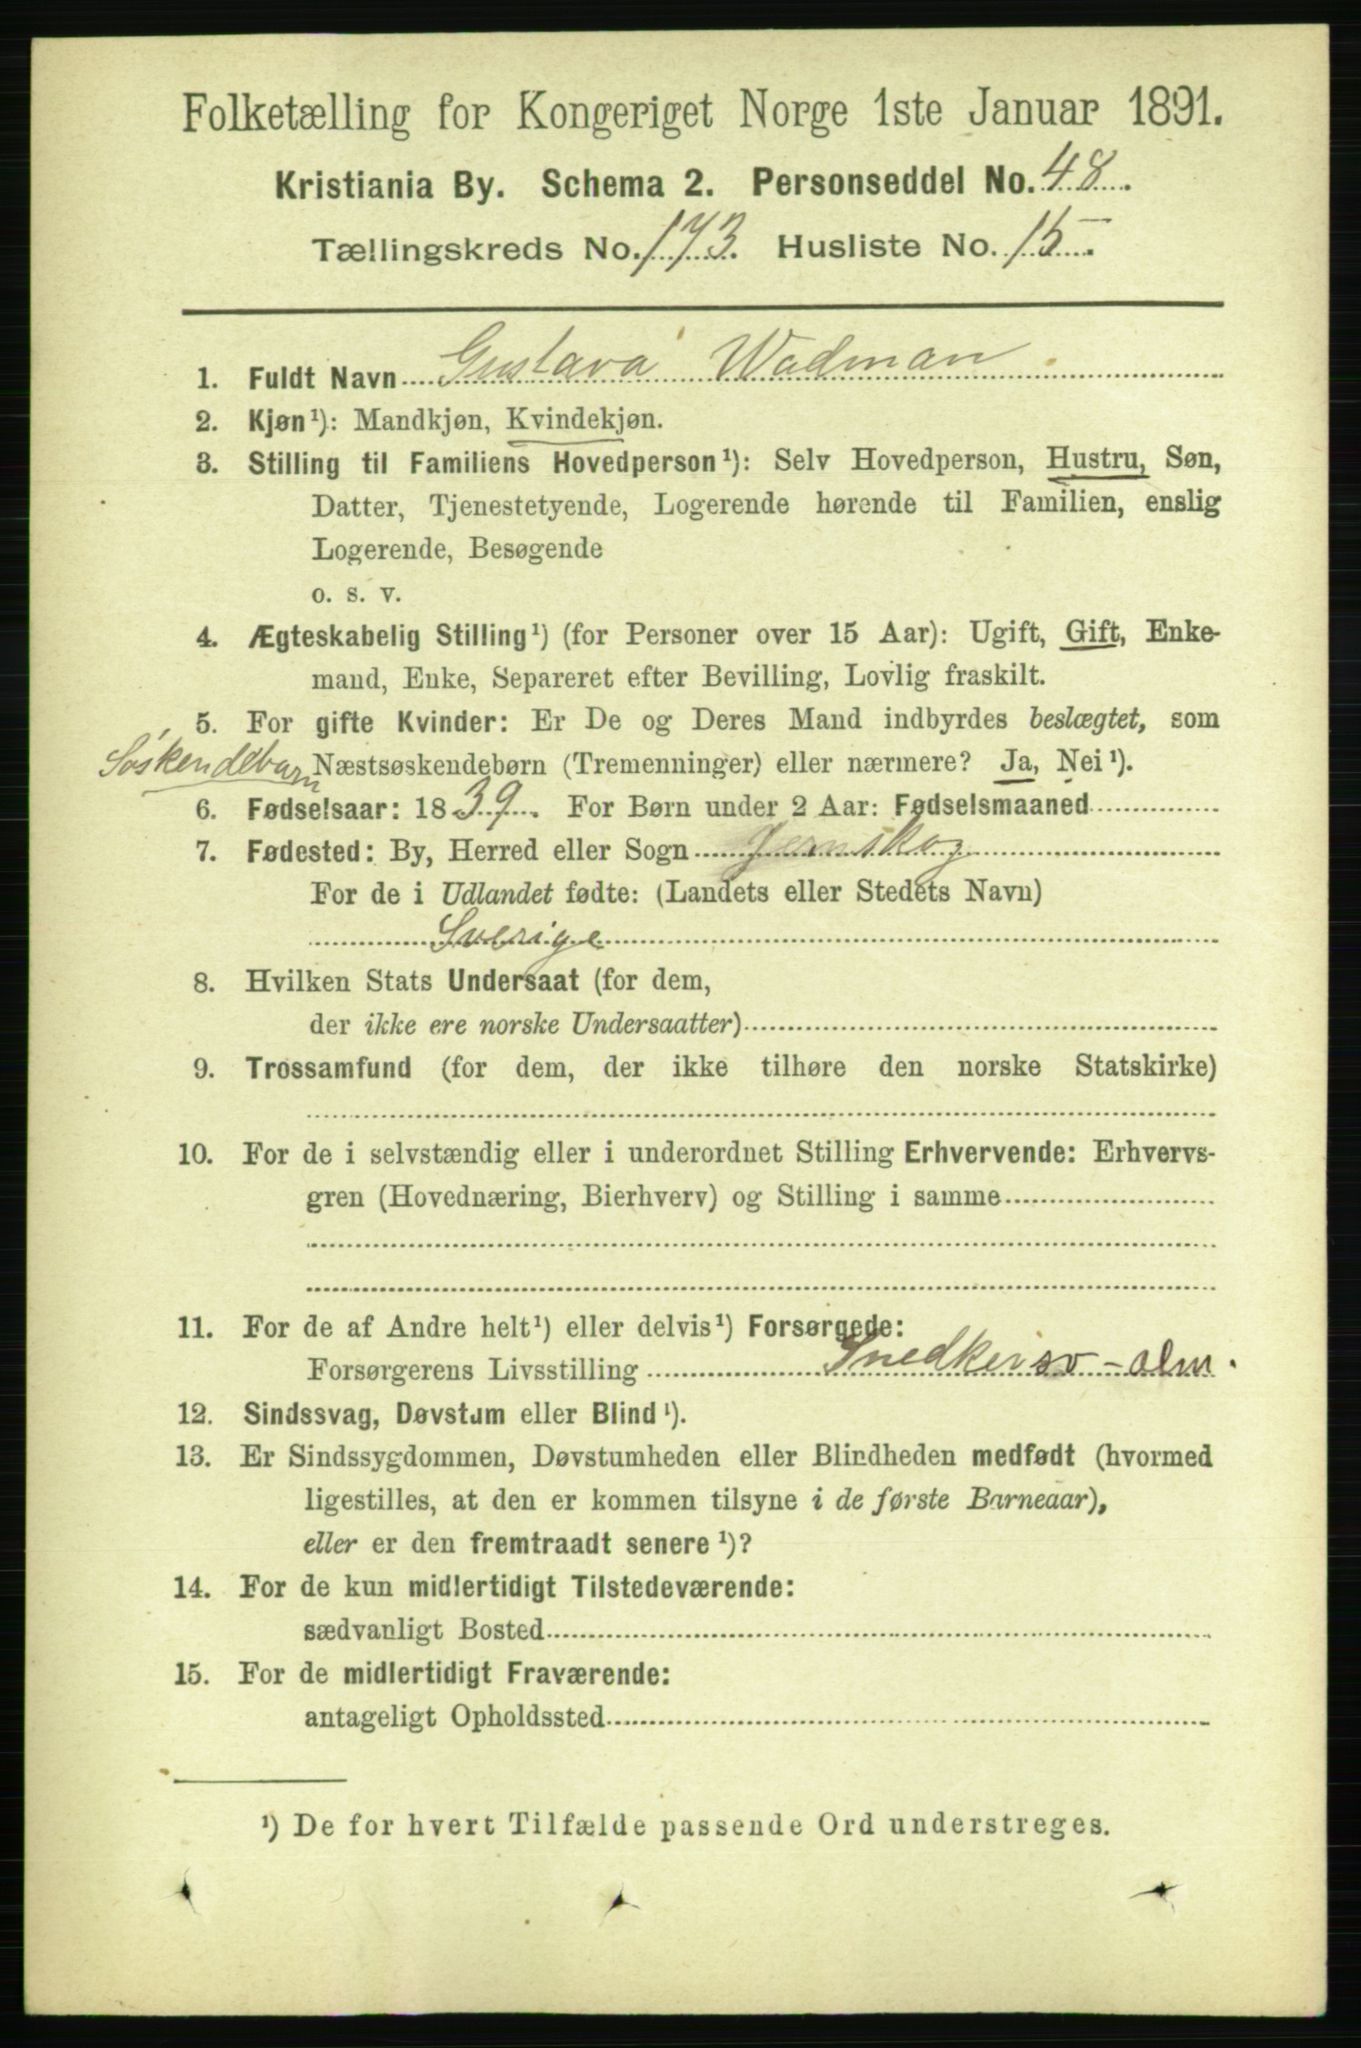 Folketælling for Kongeriget Norge 1ste Januar 1891.
Kristiania By. Schema 2. Personseddel No. 48.
Tællingskreds No. 173. Husliste No. 15.
1. Fuldt Navn Gustava Wadman
2. Kjøn¹): Mandkjøn, Kvindekjøn.
3. Stilling til Familiens Hovedperson¹): Selv Hovedperson, Hustru, Søn,
Datter, Tjenestetyende, Logerende hørende til Familien, enslig
Logerende, Besøgende
o. s. v.
4. Ægteskabelig Stilling¹) (for Personer over 15 Aar): Ugift, Gift, Enke-
mand, Enke, Separeret efter Bevilling, Lovlig fraskilt.
5. For gifte Kvinder: Er De og Deres Mand indbyrdes beslægtet, som
Søskendebarn Næstsøskendebørn (Tremenninger) eller nærmere? Ja, Nei¹).
6. Fødselsaar: 1839. For Børn under 2 Aar: Fødselsmaaned
7. Fødested: By, Herred eller Sogn Jernskog
For de i Udlandet fødte: (Landets eller Stedets Navn)
Sverige
8. Hvilken Stats Undersaat (for dem,
der ikke ere norske Undersaatter)
9. Trossamfund (for dem, der ikke tilhøre den norske Statskirke)
10. For de i selvstændig eller i underordnet Stilling Erhvervende: Erhvervs-
gren (Hovednæring, Bierhverv) og Stilling i samme
11. For de af Andre helt¹) eller delvis¹) Forsørgede:
Forsørgerens Livsstilling Snedkersv-alm.
12. Sindssvag, Døvstum eller Blind¹).
13. Er Sindssygdommen, Døvstumheden eller Blindheden medfødt (hvormed
ligestilles, at den er kommen tilsyne i de første Barneaar),
eller er den fremtraadt senere¹)?
14. For de kun midlertidigt Tilstedeværende:
sædvanligt Bosted
15. For de midlertidigt Fraværende:
antageligt Opholdssted
¹) De for hvert Tilfælde passende Ord understreges.